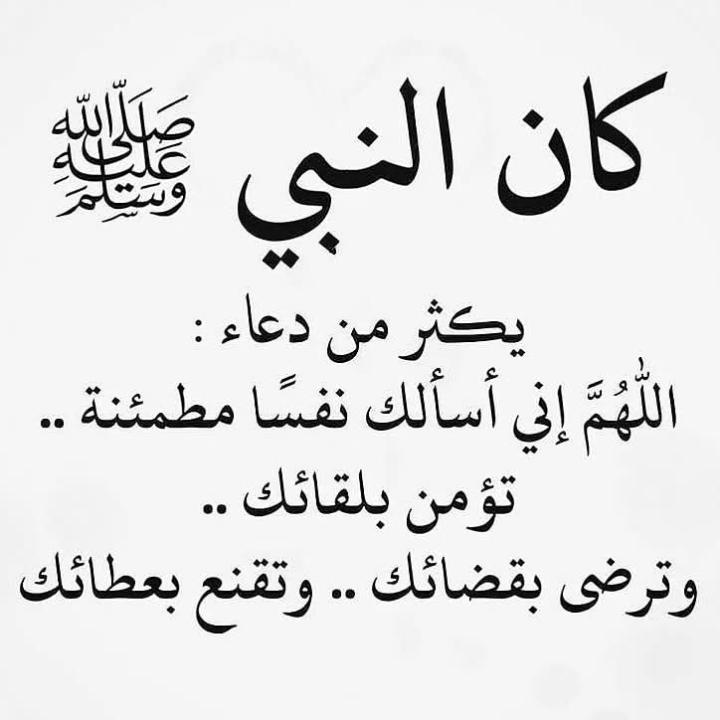 كان النبي صَلَّى اللَّه عَلَيْهِ وَسَلَّمَ
يكثر من دعاء :
اللهُمَّ إني أسألك نفسًا مطمئنة ..
تؤمن بلقائك ..
وترضى بقضائك .. وتقنع بعطائك